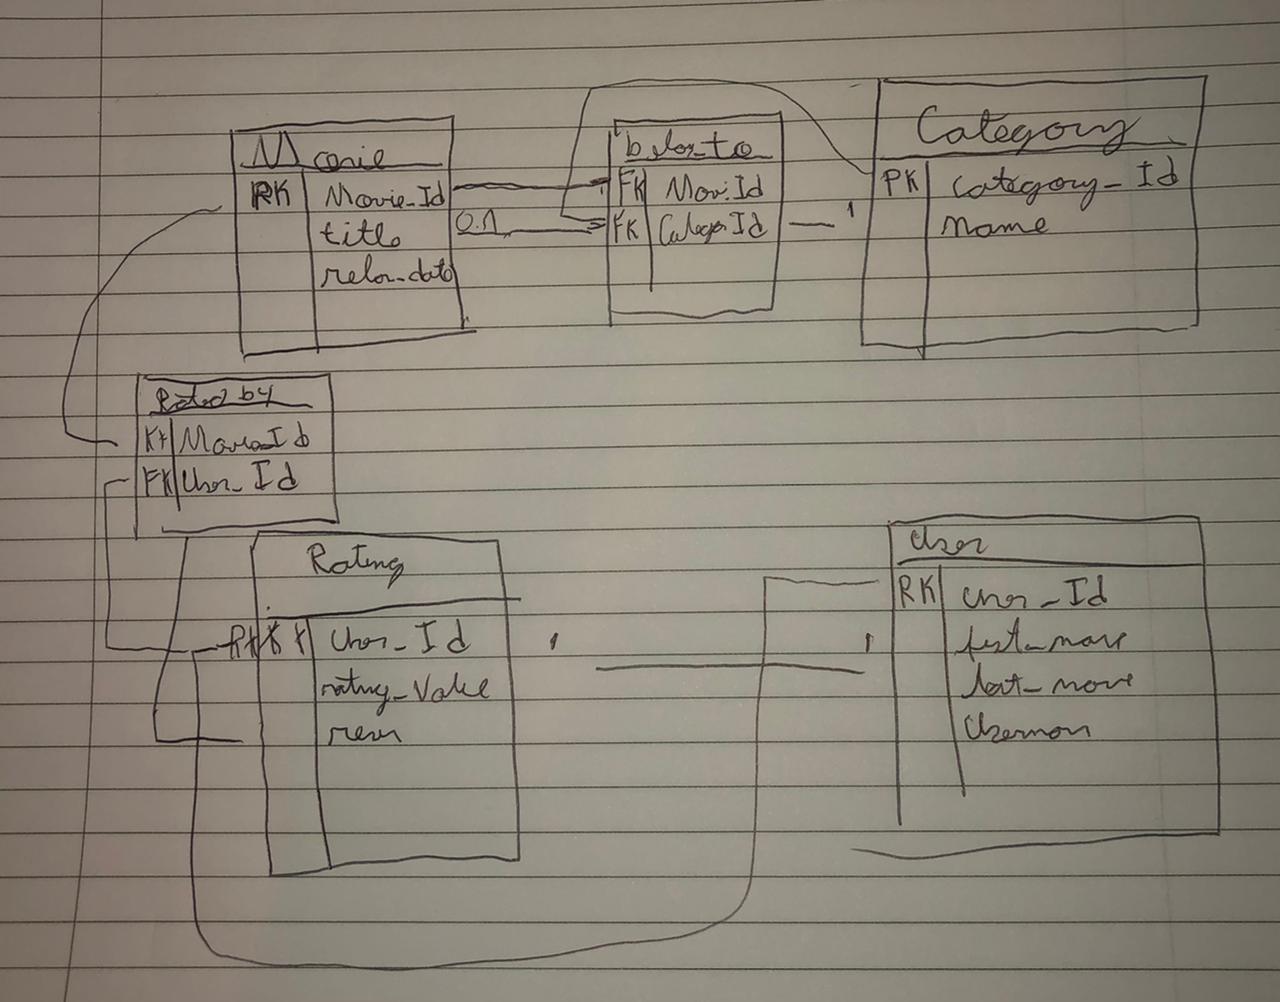 Movie
PK Movie_Id
title
relea_date
0.n
belos_to
FK Movi Id
FK Categor Id
1
Category
PK category_Id
name
Rated by
Movie_Id
FK User_Id
Rating
User_Id
rating_Value
1
1
User
PK User_Id
first_name
last_name
Username